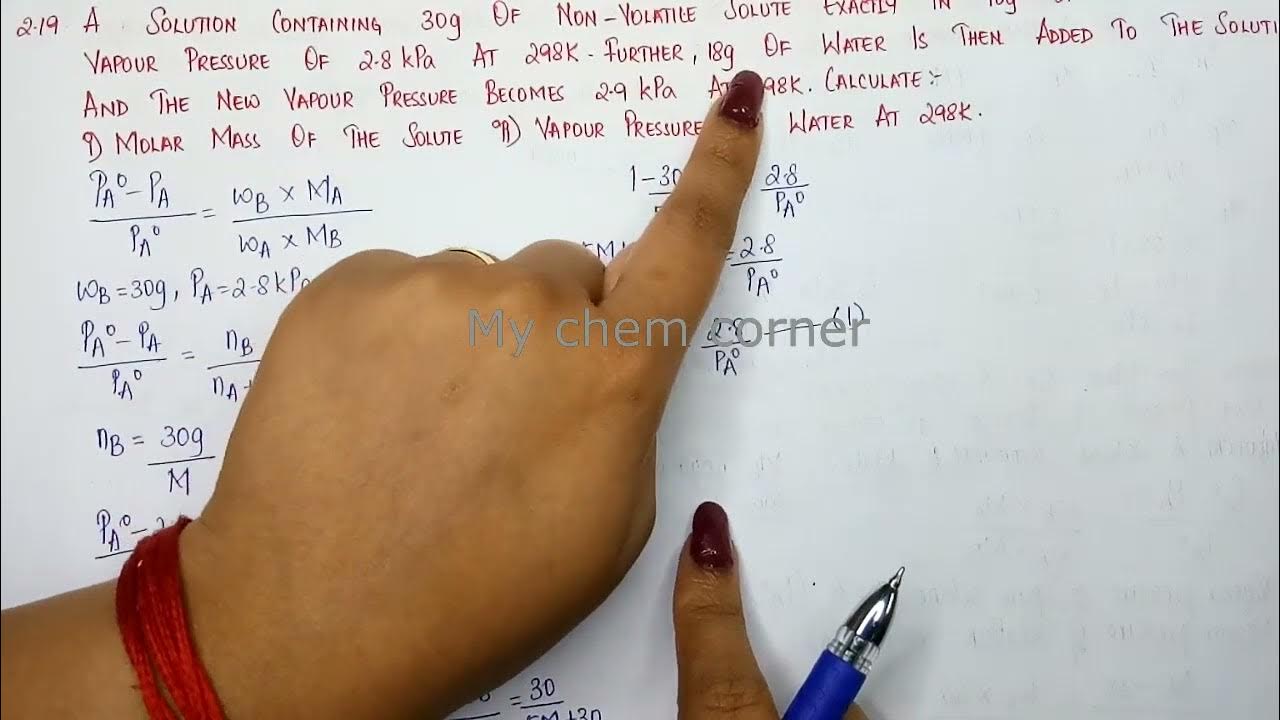 2.19 A SOLUTION CONTAINING 30g OF NON-VOLATILE SOLUTE EXACTLY IN
VAPOUR PRESSURE OF 2.8 kPa AT 298K. FURTHER, 18g OF WATER IS THEN ADDED TO THE SOLUTI
AND THE NEW VAPOUR PRESSURE BECOMES 2.9 kPa AT 298K. CALCULATE:-
i) MOLAR MASS OF THE SOLUTE ii) VAPOUR PRESSURE WATER AT 298K.
PA° - PA / PA° = wB × MA / wA × MB
wB = 30g, PA = 2.8 kPa
PA° - PA / PA° = nB / nA +
nB = 30g / M
PA° -
1 - 30 2.8 / PA°
= 2.8 / PA°
2.8 / PA° — (1)
= 30 / 5M+30
My chem corner